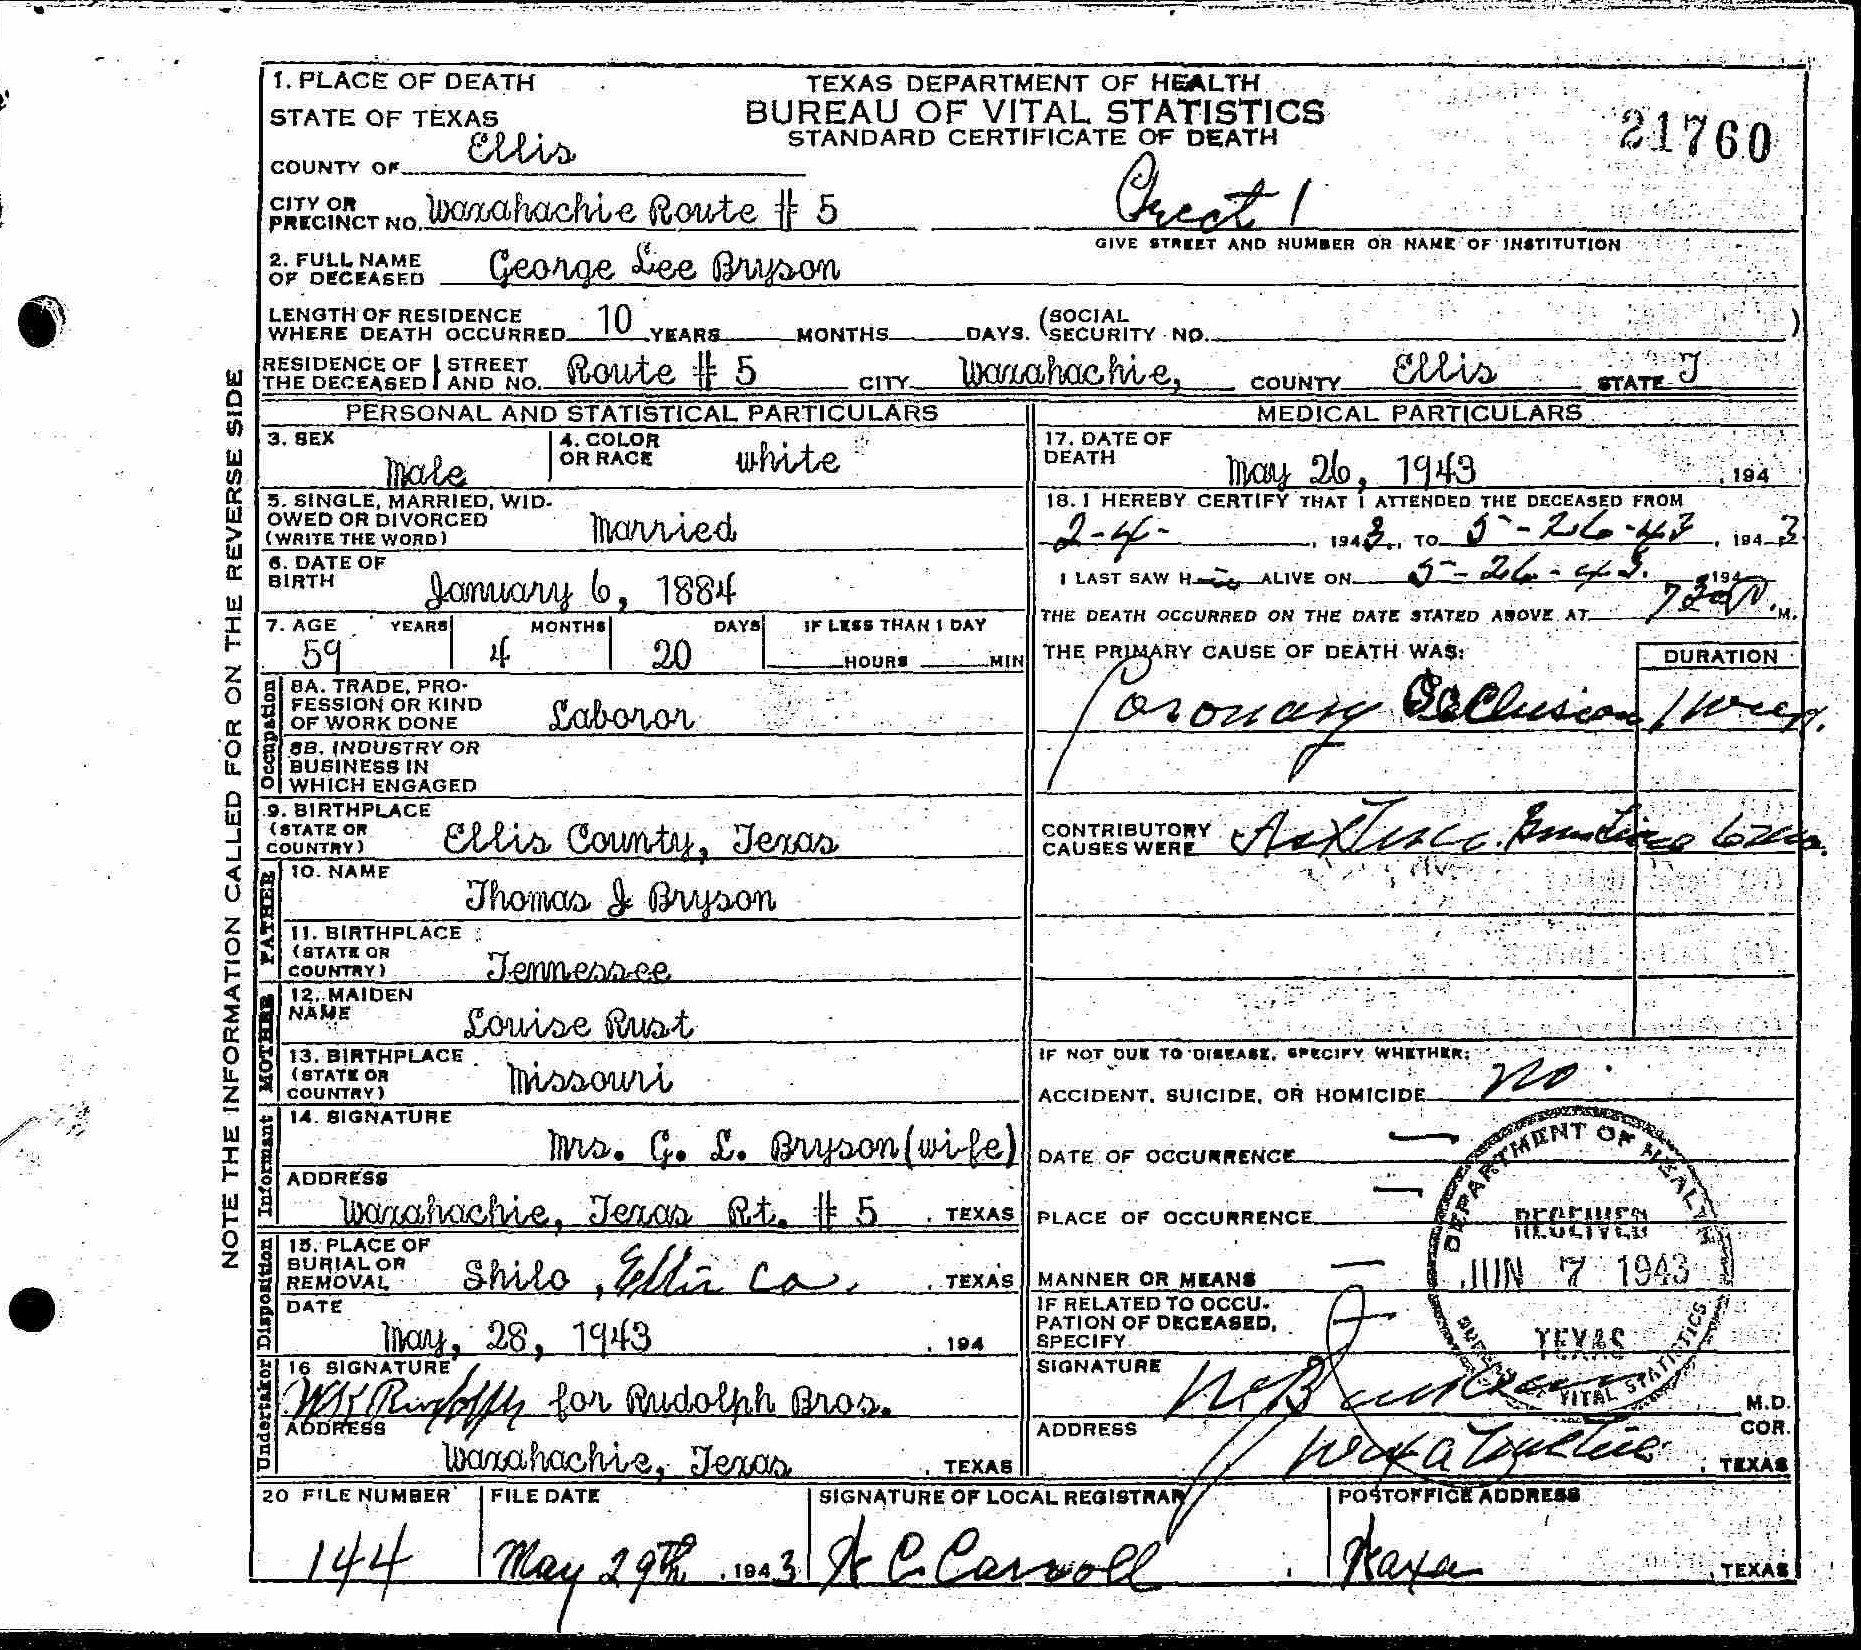 1. PLACE OF DEATH
STATE OF TEXAS
COUNTY OF Ellis
TEXAS DEPARTMENT OF HEALTH
BUREAU OF VITAL STATISTICS
STANDARD CERTIFICATE OF DEATH
21760
CITY OR PRECINCT NO. Waxahachie Route # 5 Prect 1
GIVE STREET AND NUMBER OR NAME OF INSTITUTION
2. FULL NAME OF DECEASED George Lee Bryson
LENGTH OF RESIDENCE WHERE DEATH OCCURRED 10 YEARS MONTHS DAYS. (SOCIAL SECURITY NO. )
RESIDENCE OF THE DECEASED STREET AND NO. Route # 5 CITY Waxahachie, COUNTY Ellis STATE T
NOTE THE INFORMATION CALLED FOR ON THE REVERSE SIDE
PERSONAL AND STATISTICAL PARTICULARS
3. SEX Male
4. COLOR OR RACE white
5. SINGLE, MARRIED, WIDOWED OR DIVORCED (WRITE THE WORD) Married
6. DATE OF BIRTH January 6, 1884
7. AGE YEARS MONTHS DAYS IF LESS THAN 1 DAY
59 4 20 HOURS MIN
Occupation
8A. TRADE, PROFESSION OR KIND OF WORK DONE Laboror
8B. INDUSTRY OR BUSINESS IN WHICH ENGAGED
9. BIRTHPLACE (STATE OR COUNTRY) Ellis County, Texas
FATHER
10. NAME Thomas J Bryson
11. BIRTHPLACE (STATE OR COUNTRY) Tennessee
MOTHER
12. MAIDEN NAME Louise Rust
13. BIRTHPLACE (STATE OR COUNTRY) Missouri
Informant
14. SIGNATURE Mrs. G. L. Bryson (wife)
ADDRESS
Waxahachie, Texas Rt. # 5 , TEXAS
Disposition
15. PLACE OF BURIAL OR REMOVAL Shilo, Ellis Co. , TEXAS
DATE May, 28, 1943 , 194
Undertaker
16 SIGNATURE
for Rudolph Bros.
ADDRESS
Waxahachie, Texas , TEXAS
MEDICAL PARTICULARS
17. DATE OF DEATH May 26, 1943 , 194
18. I HEREBY CERTIFY THAT I ATTENDED THE DECEASED FROM
2-4- , 1943, TO 5-26-43 , 1943
I LAST SAW Him ALIVE ON 5-26-43. 194
THE DEATH OCCURRED ON THE DATE STATED ABOVE AT 730 P. M.
THE PRIMARY CAUSE OF DEATH WAS: DURATION
Coronary Occlusion 1 week.
CONTRIBUTORY CAUSES WERE 6 mo.
IF NOT DUE TO DISEASE, SPECIFY WHETHER:
ACCIDENT, SUICIDE, OR HOMICIDE No.
DATE OF OCCURRENCE —
PLACE OF OCCURRENCE —
MANNER OR MEANS —
IF RELATED TO OCCUPATION OF DECEASED, SPECIFY
DEPARTMENT OF HEALTH
RECEIVED
JUN 7 1943
TEXAS
BUREAU OF VITAL STATISTICS
SIGNATURE M.D.
ADDRESS COR.
, TEXAS
20 FILE NUMBER FILE DATE SIGNATURE OF LOCAL REGISTRAR POSTOFFICE ADDRESS
144 May 29th , 1943 Carroll Waxa , TEXAS